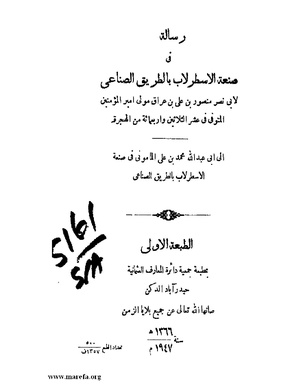 رسالة
فى
صنعة الاسطرلاب بالطريق الصناعى
لابى نصر منصور بن على بن عراق مولى امير المؤمنين
المتوفى فى عشر الثلاثين واربعمائة من الهجرة
الى ابى عبدالله محمد بن على المأمونى فى صنعة
الاسطرلاب بالطريق الصناعى
الطبعة الاولى
بمطبعة جمعية دائرة المعارف العثمانية
حيدرآباد الدكن
صانها الله تعالى عن جميع بلايا الزمن
سنة ١٣٦٦ ھ
١٩٤٧ م
تعداد الطبع ٥٠٠
www.marefa.org